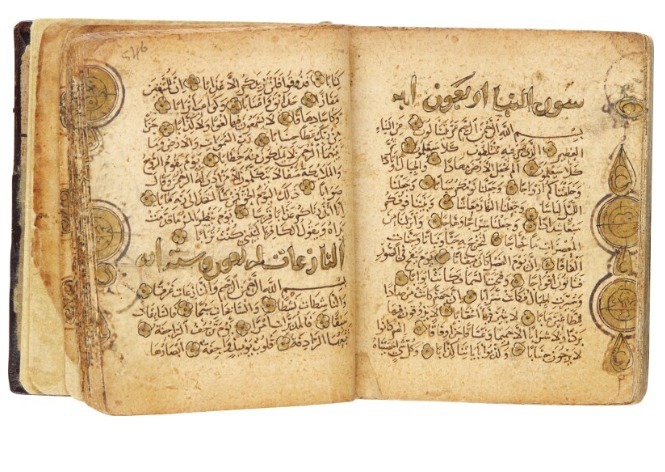 سورة النبا اربعون اية
بسم الله الرحمن الرحيم عم يتسالون عن النباء
العظيم الذي هم فيه مختلفون كلا سيعلمون ثم
كلا سيعلمون الم نجعل الارض مهادا والجبال اوتادا
وخلقناكم ازواجا وجعلنا نومكم سباتا وجعلنا
الليل لباسا وجعلنا النهار معاشا وبنينا فوقكم
سبعا شدادا وجعلنا سراجا وهاجا وانزلنا من
المعصرات ماء ثجاجا لنخرج به حبا ونباتا وجنات
الفافا ان يوم الفصل كان ميقاتا يوم ينفخ في الصور
فتاتون افواجا وفتحت السماء فكانت ابوابا
وسيرت الجبال فكانت سرابا ان جهنم كانت مرصادا
للطاغين مابا لابثين فيها احقابا لا يذوقون فيها
بردا ولا شرابا الا حميما وغساقا جزاء وفاقا انهم كانوا
لا يرجون حسابا وكذبوا باياتنا كذابا وكل شيء
546
كتابا فذوقوا فلن نزيدكم الا عذابا ان للمتقين
مفازا حدائق واعنابا وكواعب اترابا
وكاسا دهاقا لا يسمعون فيها لغوا ولا كذابا جزاء
من ربك عطاء حسابا رب السموات والارض وما
بينهما الرحمن لا يملكون منه خطابا يوم يقوم الروح
والملائكة صفا لا يتكلمون الا من اذن له الرحمن وقال
صوابا ذلك اليوم الحق فمن شاء اتخذ الى ربه مابا
انا انذرناكم عذابا قريبا يوم ينظر المرء ما قدمت
يداه ويقول الكافر يا ليتني كنت ترابا
النازعات اربعون وست اية
بسم الله الرحمن الرحيم والنازعات غرقا
والناشطات نشطا والسابحات سبحا فالسابقات
سبقا فالمدبرات امرا يوم ترجف الراجفة
تتبعها الرادفة قلوب يومئذ واجفة ابصارها